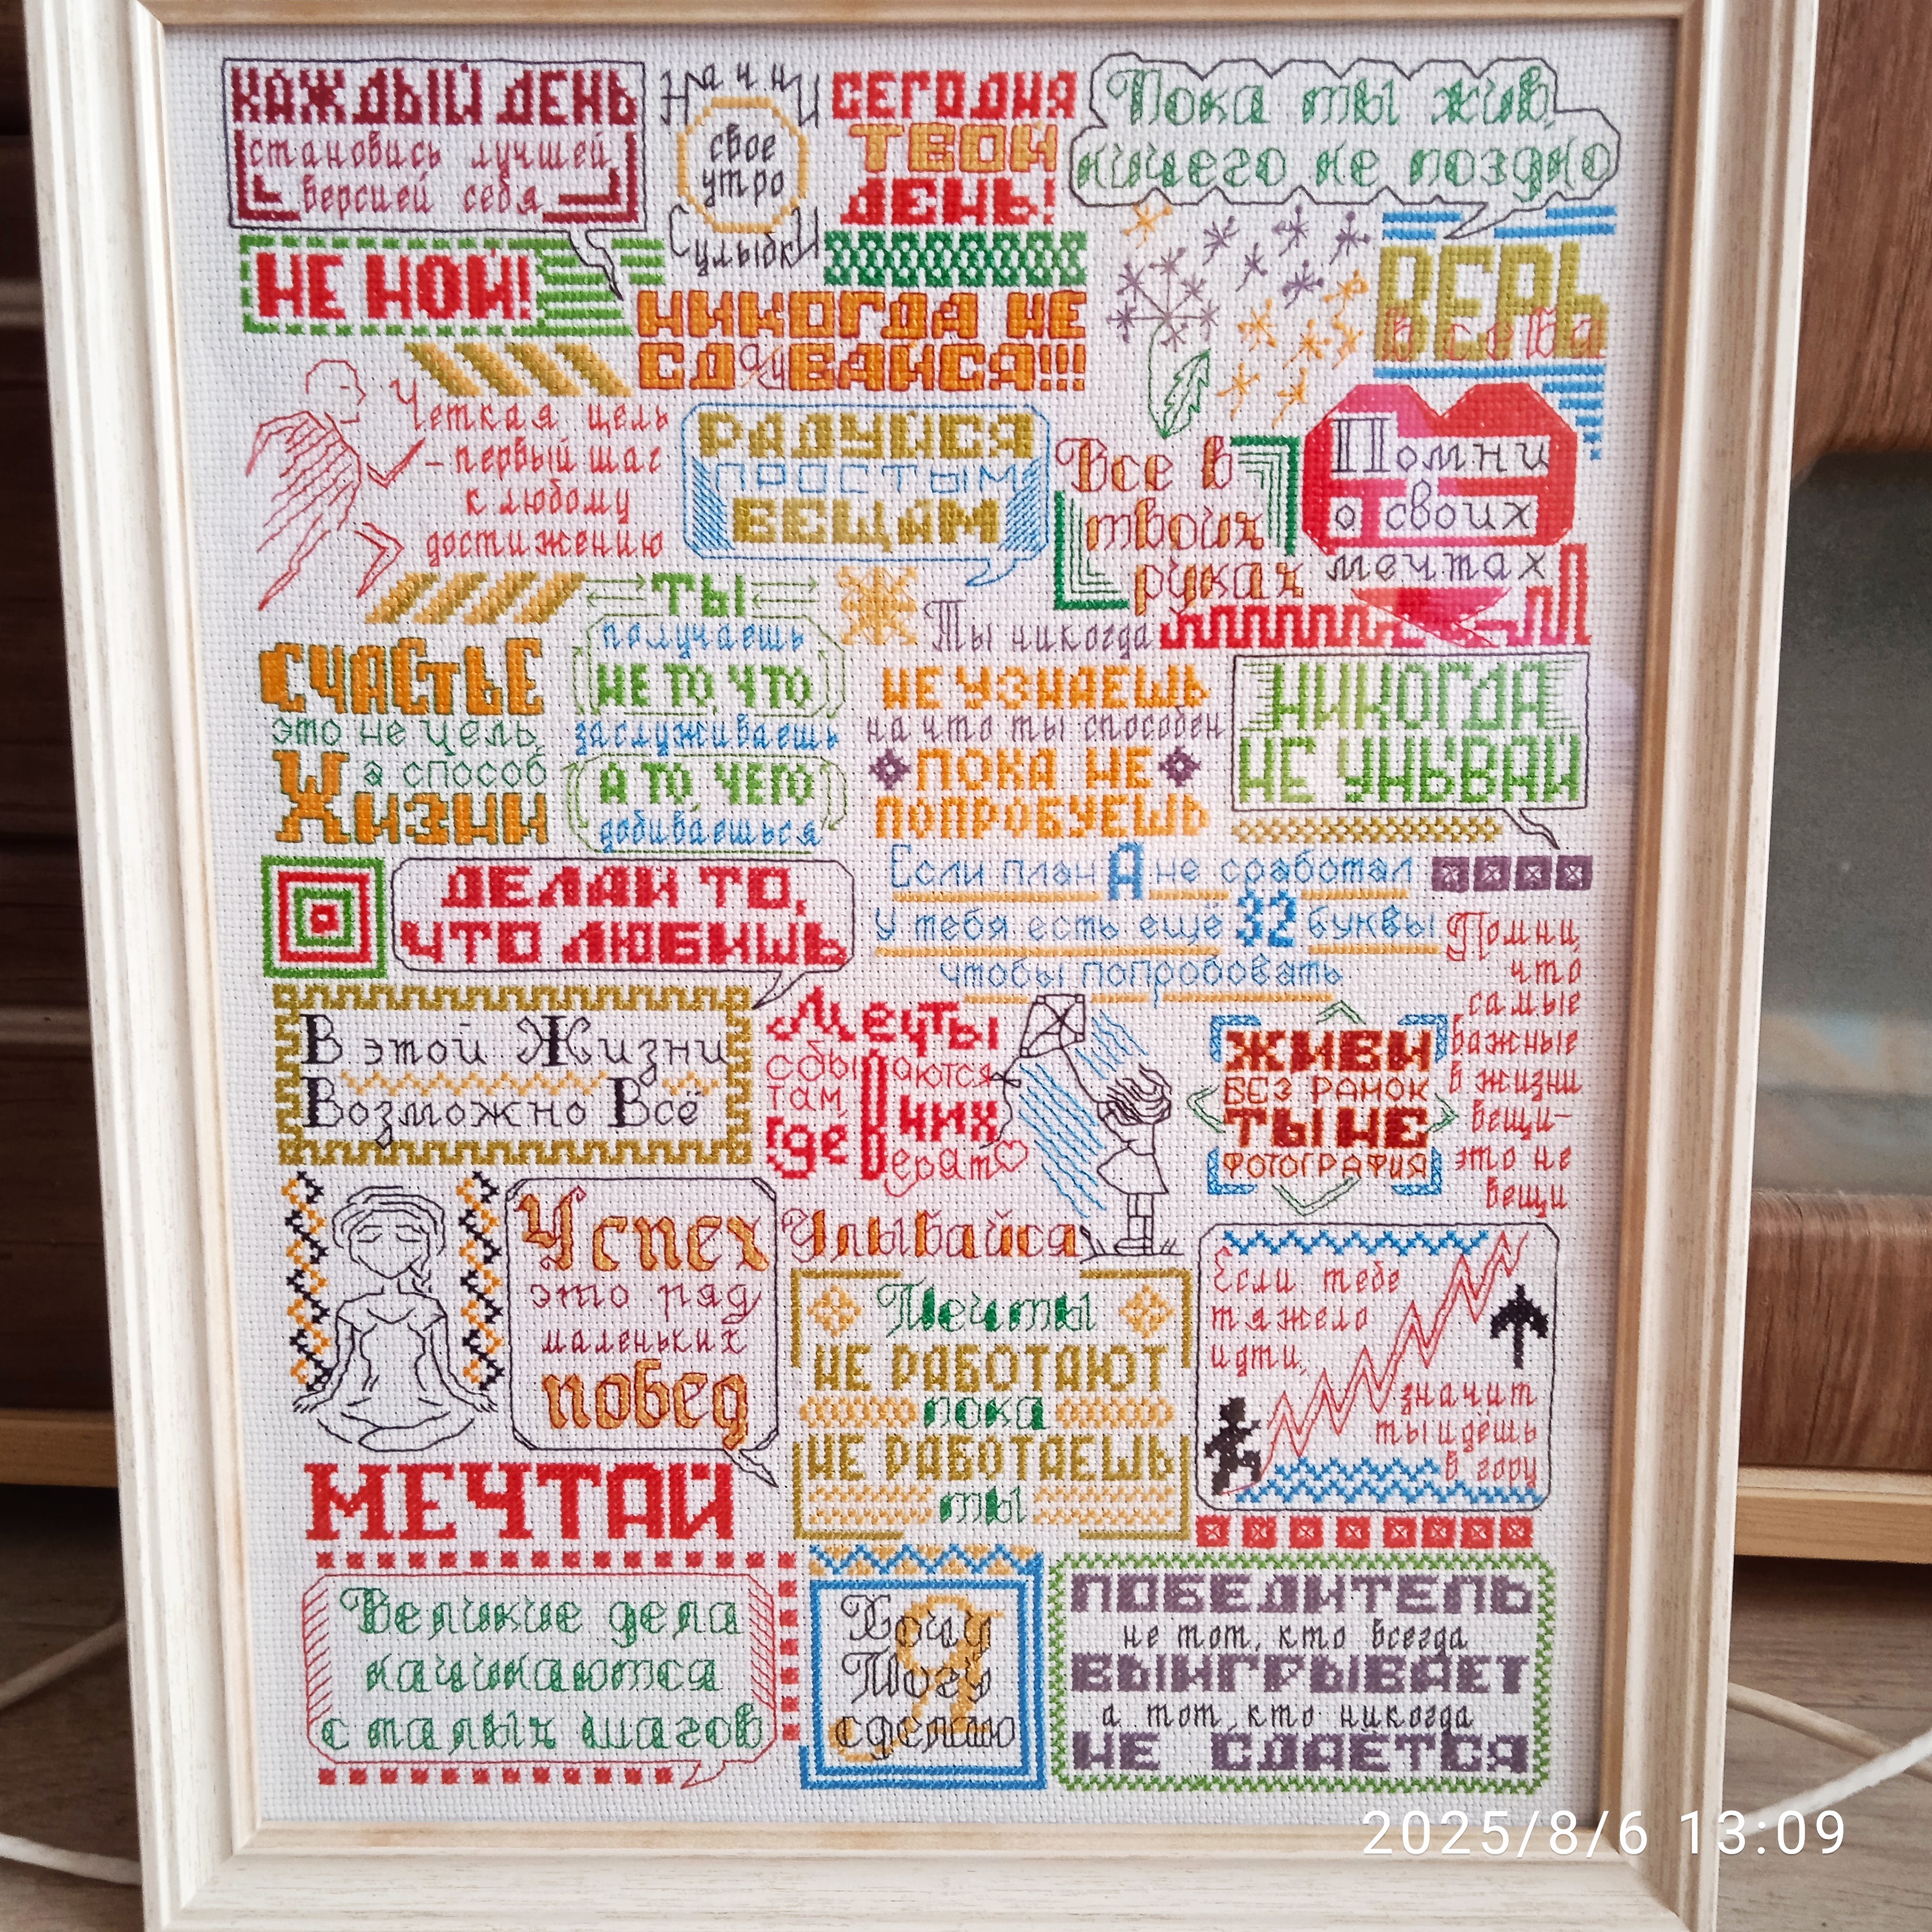 КАЖДЫЙ ДЕНЬ
становись лучшей
версией себя
Начни
свое
утро
С улыбки
СЕГОДНЯ
ТВОЙ
ДЕНЬ!
Пока ты жив,
ничего не поздно
НЕ НОЙ!
НИКОГДА НЕ
СДАВАЙСЯ!!!
ВЕРЬ
в себя
Четкая цель
- первый шаг
к любому
достижению
РАДУЙСЯ
ПРОСТЫМ
ВЕЩАМ
Все в
твоих
руках
Помни
о своих
мечтах
СЧАСТЬЕ
это не цель,
а способ
Жизни
ТЫ
получаешь
НЕ ТО ЧТО
заслуживаешь
А ТО, ЧЕГО
добиваешься
Ты никогда
НЕ УЗНАЕШЬ
на что ты способен
ПОКА НЕ
ПОПРОБУЕШЬ
НИКОГДА
НЕ УНЫВАЙ
ДЕЛАЙ ТО,
ЧТО ЛЮБИШЬ
Если план А не сработал
У тебя есть ещё 32 буквы
чтобы попробовать
Помни,
что
самые
важные
в жизни
вещи-
это не
вещи
В этой Жизни
Возможно Всё
Мечты
сбываются
там,
где в них
верят
ЖИВИ
БЕЗ РАМОК
ТЫ НЕ
ФОТОГРАФИЯ
Успех
это ряд
маленьких
побед
Улыбайся
Мечты
НЕ РАБОТАЮТ
пока
НЕ РАБОТАЕШЬ
ты
Если тебе
тяжело
идти,
значит
ты идешь
в гору
МЕЧТАЙ
Великие дела
начинаются
с малых шагов
Я
Хочу
Могу
сделаю
ПОБЕДИТЕЛЬ
не тот, кто всегда
ВЫИГРЫВАЕТ
а тот, кто никогда
НЕ СДАЕТСЯ
2025/8/6 13:09